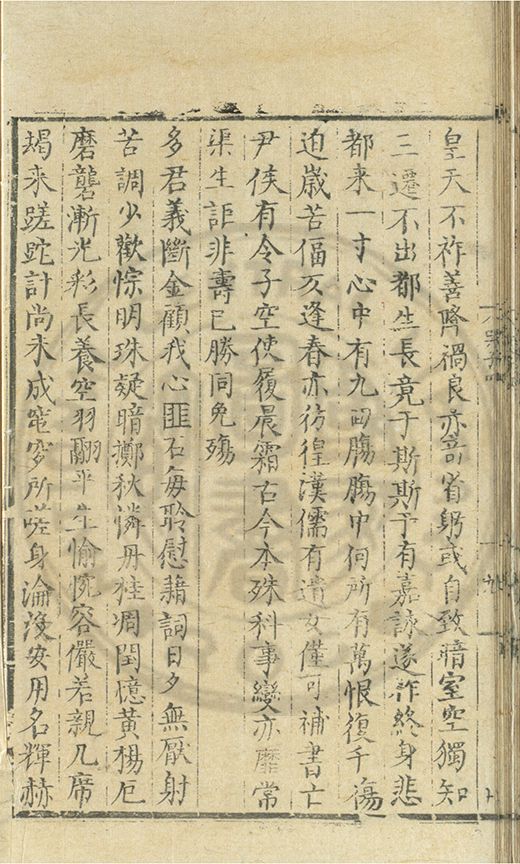 皇天不祚善降禍良亦哿省躬或自致暗室空獨知
三遷不出都生長竟于斯斯予有嘉詠遂作終身悲
都来一寸心中有九囬膓膓中何所有萬恨復千傷
迫歲苦偪仄逢春亦彷徨漢儒有遺女僅可補書亡
尹侯有令子空使履晨霜古今本殊科事變亦靡常
渠生詎非壽已勝同免殤
多君義斷金顧我心匪石每聆慰藉詞日夕無厭射
苦調少歡悰明珠疑暗擲秋憐丹桂凋閏憶黃楊厄
磨礱漸光彩長養空羽翮平生愉惋容儼若親几席
朅来蹉跎計尚未成窀穸所嗟身淪沒安用名輝赫